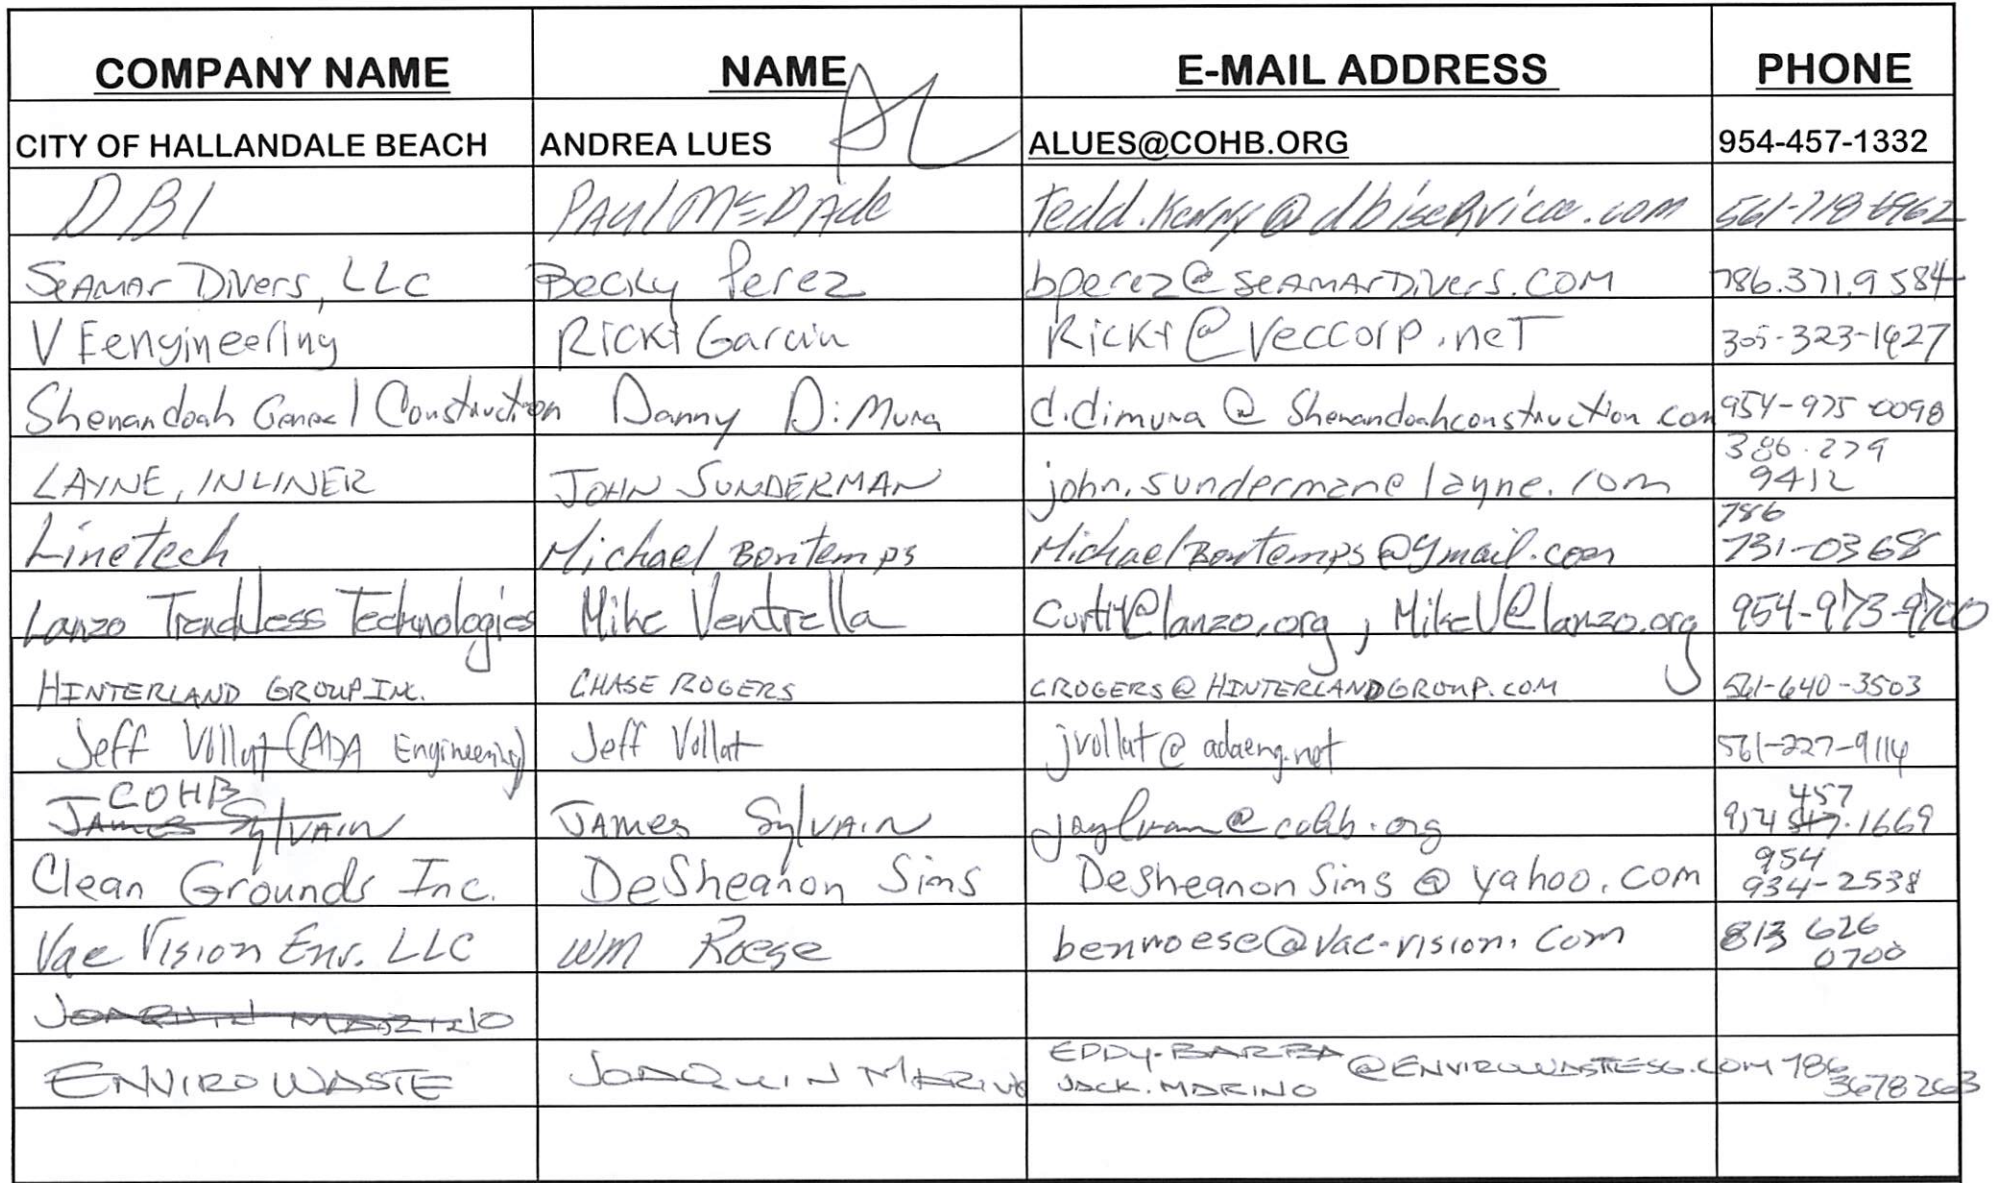 COMPANY NAME NAME E-MAIL ADDRESS PHONE
CITY OF HALLANDALE BEACH ANDREA LUES AL ALUES@COHB.ORG 954-457-1332
DBI PAul McDAde tedd.kenny@dbiservice.com 561-718-6962
SeAMAr Divers, LLc Becky Perez bperez@seAMArDivers.COM 786.371.9584
V Eengineering Ricky Garcia Ricky@veccorp.net 305-323-1627
Shenandoah General Construction Danny DiMura d.dimura@Shenandoahconstruction.com 954-975-0098
LAYNE, INLINER JOHN SUNDERMAN john.sunderman@layne.com 386.279 9412
Linetech Michael Bontemps MichaelBontemps@gmail.com 786 731-0368
Lanzo Trenchless Technologies Mike Ventrella CurtY@lanzo.org, MikeV@lanzo.org 954-973-9700
HINTERLAND GROUP INC. CHASE ROGERS CROGERS@HINTERLANDGROUP.COM 561-640-3503
Jeff Vollat (ADA Engineering) Jeff Vollat jvollat@adaeng.net 561-227-9114
COHB
JAmes SylVAIN JAMes SylVAIN @cohb.org 954 457.1669
Clean Grounds Inc. DeSheanon Sims DesheanonSims@yahoo.com 954 934-2538
Vac Vision Env. LLC WM Roese benroese@vac-vision.com 813 626 0700
JOAQUIN MARINO
ENVIROWASTE JOAQUIN MARINO EDDY.BARBA JACK.MARINO @ENVIROWASTESG.COM 786 3678263